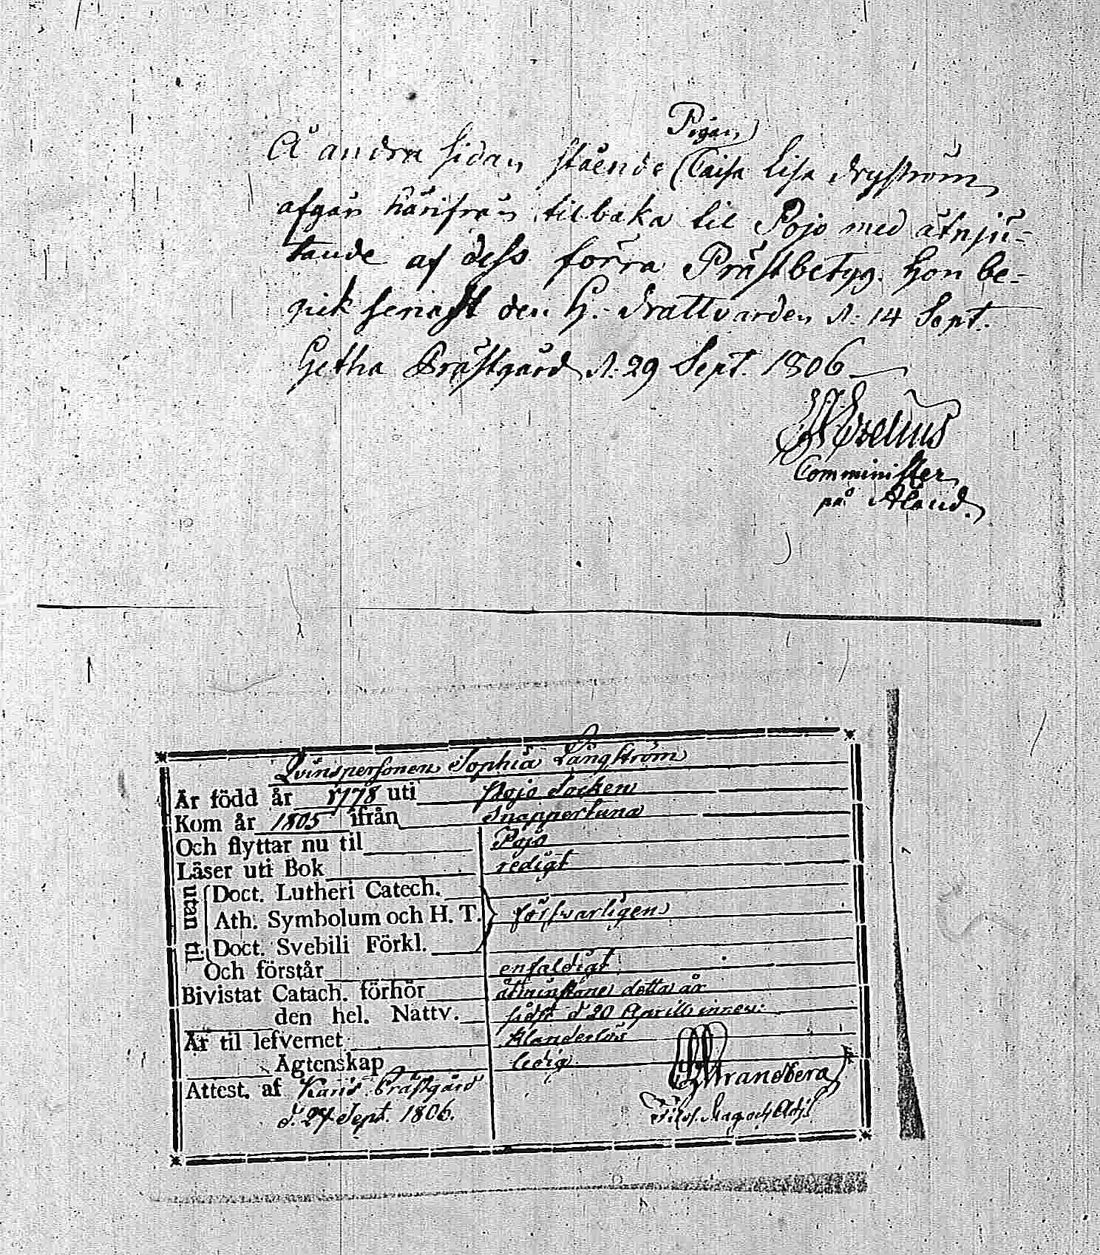 Pigan
Å andra sidan stående Caisa Lisa Dryström
afgår härifrån tilbaka til Pojo med åtnju-
tande af dess förra Prästbetyg. Hon be-
gick senast den H. Nattvarden d. 14 Sept.
Getha Prästgård d. 29 Sept. 1806
Comminister
på Åland.
Qvinspersonen Sophia Långström
Är född år 1778 uti Pojo Socken
Kom år 1805 ifrån Snappertuna
Och flyttar nu til Pojo
Läser uti Bok redigt
utan til
Doct. Lutheri Catech.
Ath. Symbolum och H. T. försvarligen
Doct. Svebili Förkl.
Och förstår enfaldigt
Bivistat Catach. förhör åtminstone detta år
den hel. Nattv. sidst d 20 Aprill innev:
Är til lefvernet klanderlös
Ägtenskap ledig
Attest. af Karis Prästgård
d. 27 Sept. 1806.